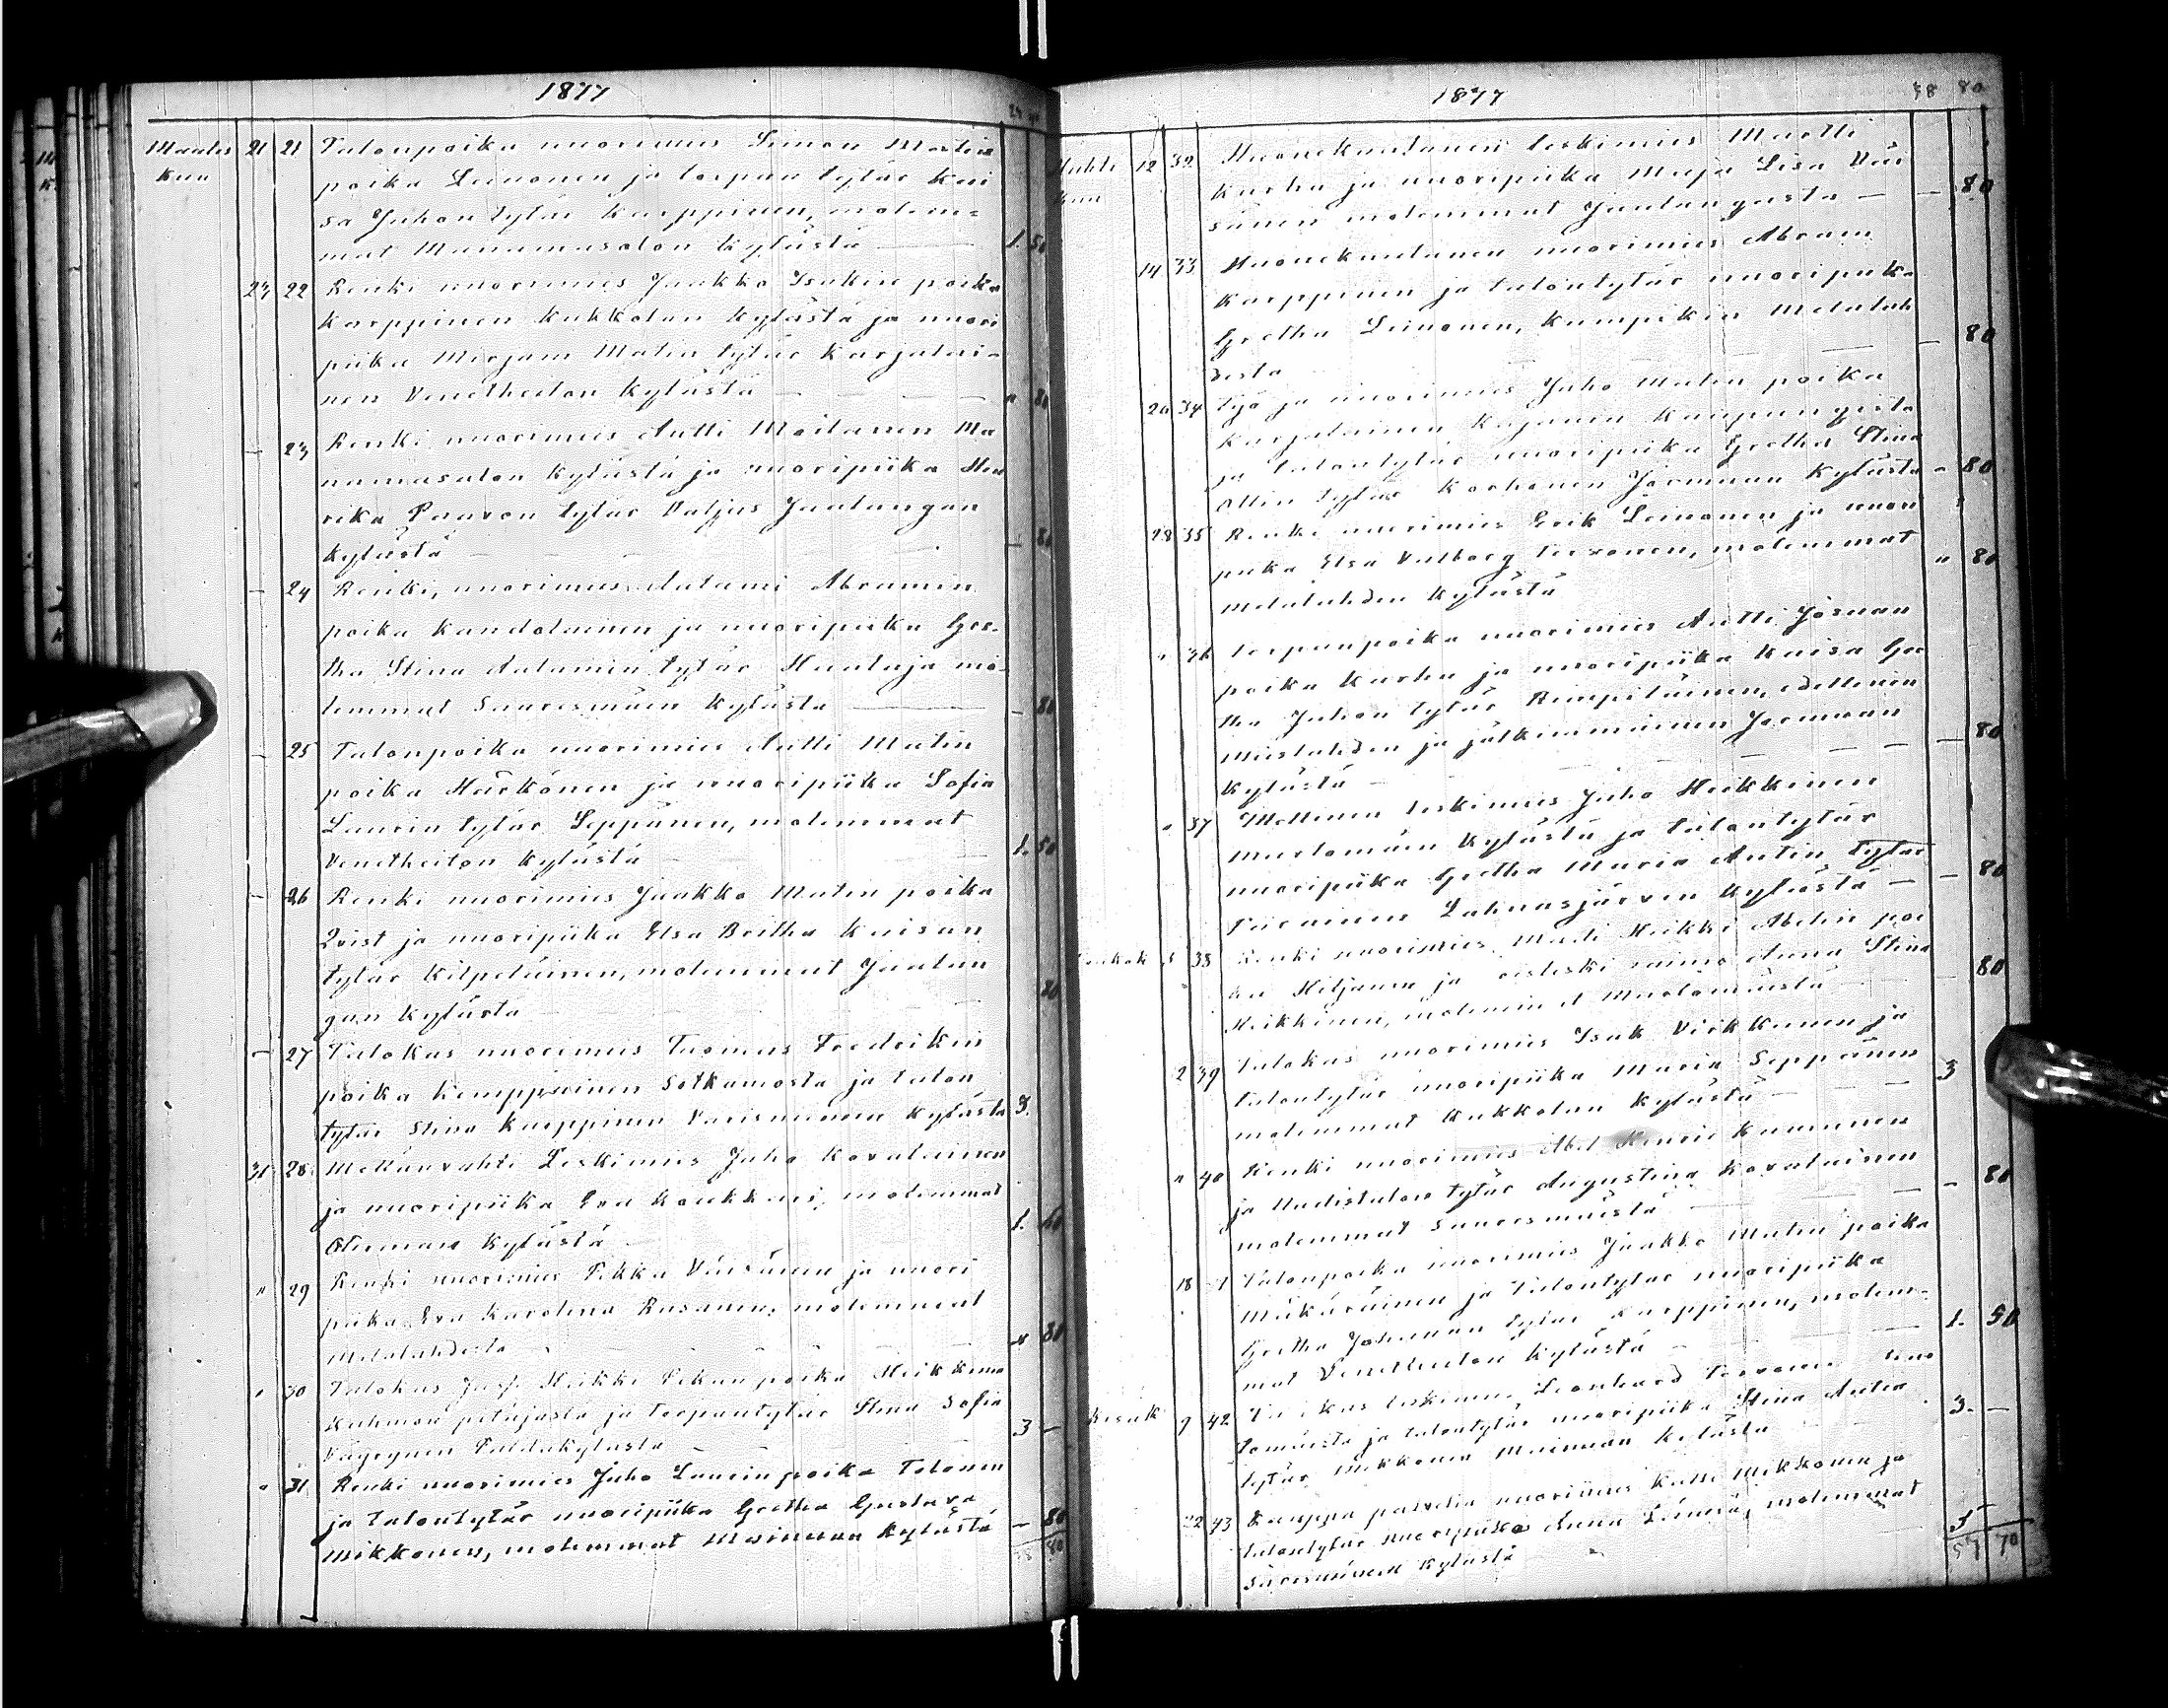 1877
Maalis 21 21 Talonpoika nuorimies Simon Martin
kuu poika Leinonen ja torpan tytär Kai
sa Juhon tytär Karppinen, molem=
mat Manamasalon kylästä 1. 50
23 22 Renki nuorimies Jaakko Isakin poika
Karppinen Kukkolan kylästä ja nuori
piika Mirjam Matin tytär Karjalai-
nen Venetheiton kylästä — " 80
— 23 Renki nuorimies Antti Moilanen Ma
namasalon kylästä ja nuoripiika Hen
rika Paavon tytär Valjus Jaalangan
kylästä — — 80
— 24 Renki, nuorimies Aatami Abramin
poika Kandolainen ja nuoripiika Gre-
tha Stina Aatamin tytär Huotuja mo-
lemmat Saaresmäen kylästä — — 80
— 25 Talonpoika nuorimies Antti Matin
poika Härkönen ja nuoripiika Sofia
Laurin tytär Seppänen, molemmat
Venetheiton kylästä 1. 50
— 26 Renki nuorimies Jaakko Matin poika
Qvist ja nuoripiika Elsa Britha Kaisan
tytär Kilpeläinen, molemmat Jaalan
gan kylästä — 80
— 27 Talokas nuorimies Tuomas Fredrikin
poika Kemppainen Sotkamosta ja talon
tytär Stina Karppinen Varismeren kylästä 3.
31 28. Metsänvahti Leskimies Juho Kovalainen
ja nuoripiika Eva Koukkari, molemmat
Oterman kylästä 1.
" 29 Renki nuorimies Pekka Väisänen ja nuori
piika Eva Karolina Rusanen, molemmat
Melalahdesta " 80
" 30 Talokas Heikki Pekan poika Heikkinen
Kuhmon pitäjästä ja torpantytär Stina Sofia
Väyrynen Paldakylästä 3 —
" 31 Renki nuorimies Juho Laurin poika Tolonen
ja talontytär nuoripiika Gretha Gustava
Mikkonen, molemmat Mainuan kylästä — 80
80
1877
38 80
Huhti 12 32 Huonekuntanen leskimies Martti
kuu Karhu ja nuoripiika Maja Lisa Väi
sänen molemmat Jaalangasta — — 80
14 33 Huonekuntanen nuorimies Abram
Karppinen ja talontytär nuoripiika
Gretha Leinonen, kumpikin Melalah
desta — 80
20 34 Työ ja nuorimies Juho Matin poika
Karjalainen Kajanin kaupungista
ja talontytär nuoripiika Gretha Stina
Ollin tytär Korhonen Jormuan kylästä " 80
28 35 Renki nuorimies Erik Leinonen ja nuori
piika Elsa Valborg Tervonen, molemmat " 80
Melalahden kylästä
" 36 Torpanpoika nuorimies Antti Josuan
poika Karhu ja nuoripiika Kaisa Gre
tha Juhon tytär Rimpiläinen, edellinen
Mieslahden ja jälkimmäinen Jormuan
kylästä — — — — 80
" 37 Itsellinen leskimies Juho Heikkinen
Murtomäen kylästä ja talontytär
nuoripiika Gretha Maria Antin tytär
Piirainen Lahnasjärven kylästä — — 80
Toukok 38 Renki nuorimies Matti Heikki Abelin poi
ka Hiljanen ja Anna Stina
Heikkinen, molemmat Murtomäestä — 80
2 39 Talokas nuorimies Isak Veikkanen ja
talontytär nuoripiika Maria Seppänen
molemmat Kukkolan kylästä — 3
" 40 Renki nuorimies Abel Henrik Kananen
ja Uudistalon tytär Augustina Kovalainen
molemmat Saaresmäestä — — 80
18 Talonpoika nuorimies Jaakko Matin poika
Mikäräinen ja Talontytär nuoripiika
Gretha Johannan tytär Karppinen, molem-
mat Venetheiton kylästä — 1. 50
Kesäk 9 42 leskimies Leonhard Tervonen
ja talontytär nuoripiika Stina Antin
tytär Mikkonen Mainuan kylästä 3. —
22 43 Kauppa palvelia nuorimies Kalle Mikkonen ja
talontytär nuoripiika Anna molemmat
kylästä
57 70